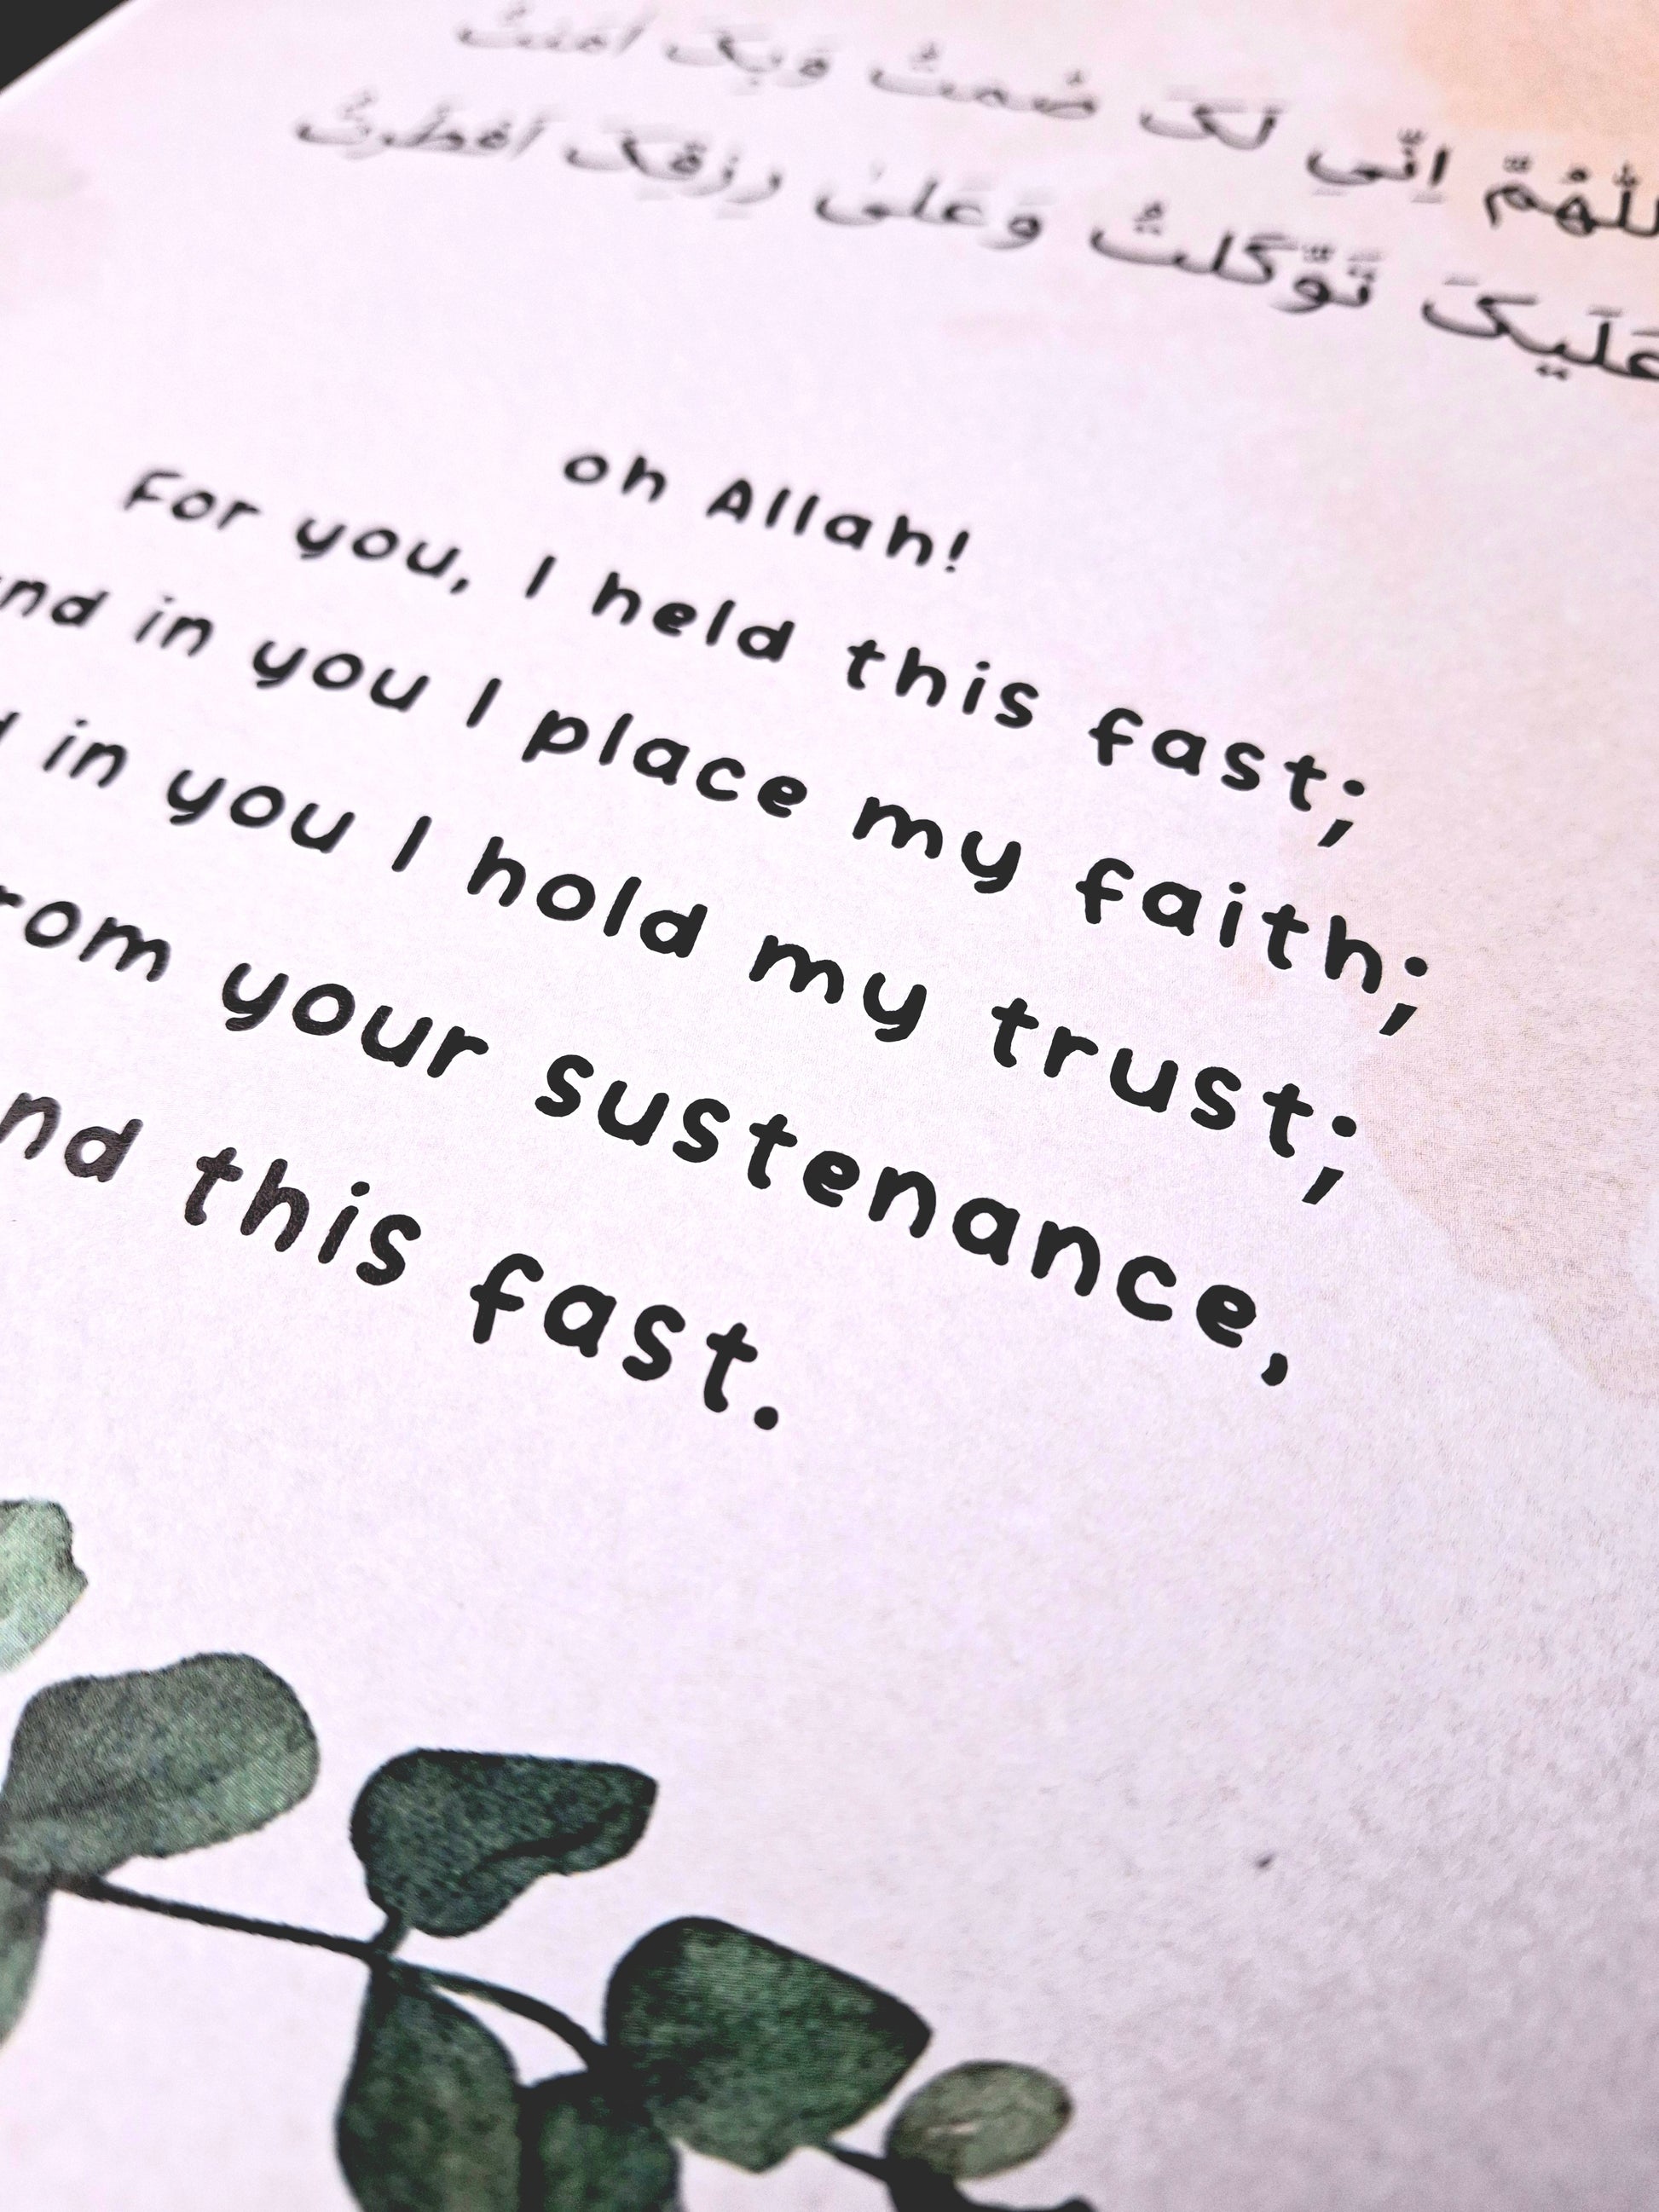 للّٰهُمَّ اِنِّي لَکَ صُمتُ وَبِکَ اٰمَنتُ
عَلَيکَ تَوَّکَلتُ وَعَلىٰ رِزقِکَ اَفطَرتُ
oh Allah!
For you, I held this fast;
nd in you I place my faith;
d in you I hold my trust;
rom your sustenance,
nd this fast.